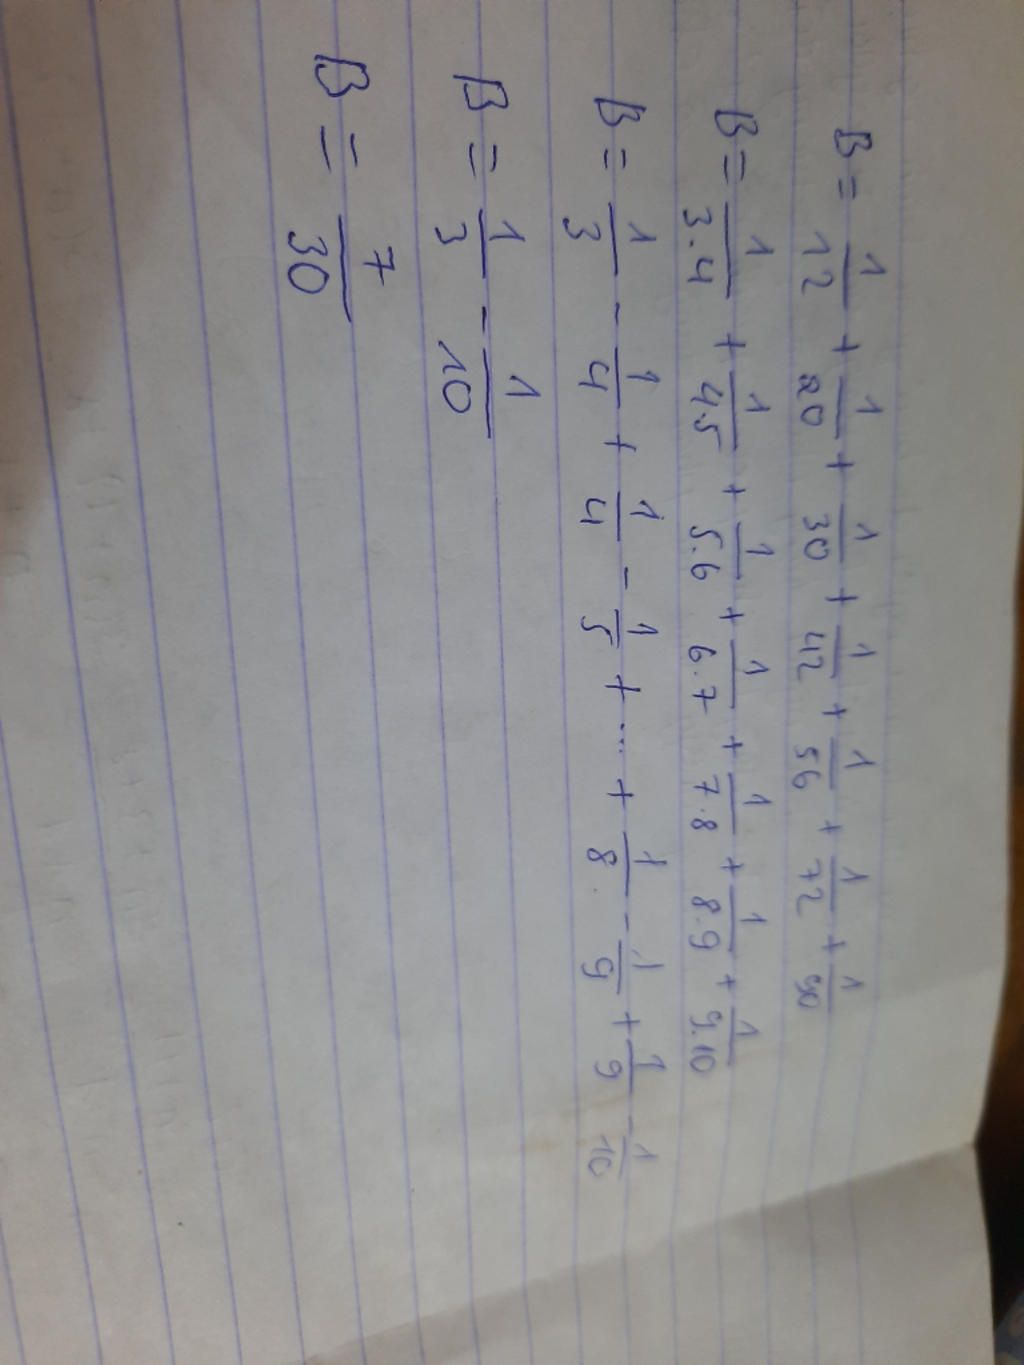 B = 1/12 + 1/20 + 1/30 + 1/42 + 1/56 + 1/72 + 1/90
B = 1/3.4 + 1/4.5 + 1/5.6 + 1/6.7 + 1/7.8 + 1/8.9 + 1/9.10
B = 1/3 - 1/4 + 1/4 - 1/5 + ... + 1/8 - 1/9 + 1/9 - 1/10
B = 1/3 - 1/10
B = 7/30